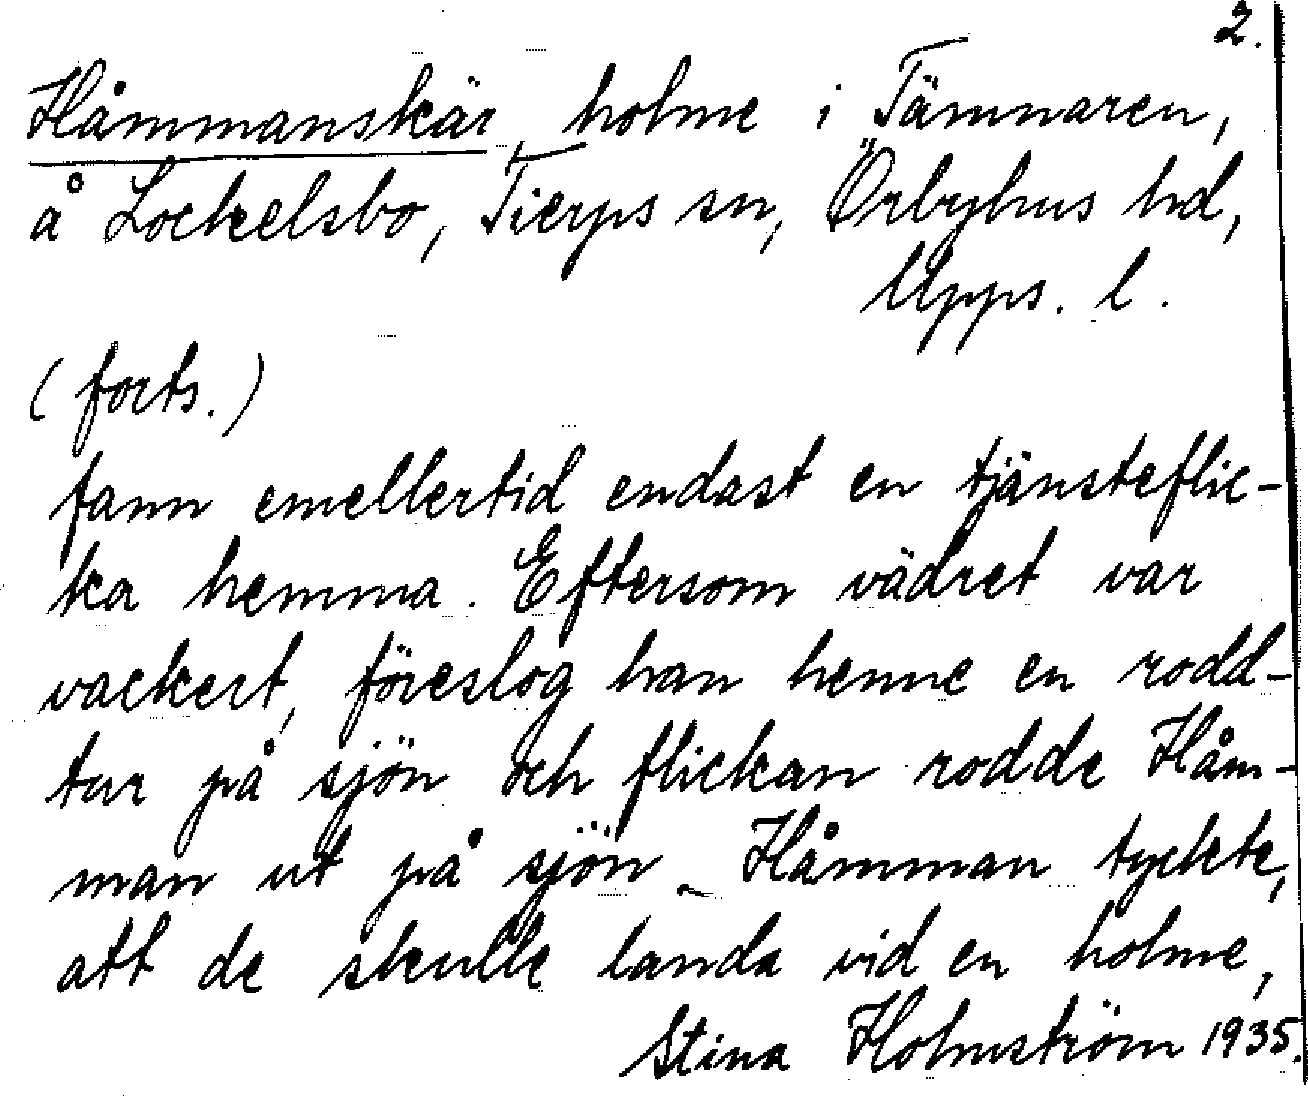 2.
Håmmanskär, holme i Tämnaren,
å Lockelsbo, Tierps sn, Örbyhus hd,
Upps. l.
(forts.)
fann emellertid endast en tjänsteflic-
ka hemma. Eftersom vädret var
vackert, föreslog han henne en rodd-
tur på sjön och flickan rodde Håm-
man ut på sjön. Håmman tyckte,
att de skulle landa vid en holme,
Stina Holmström 1935.